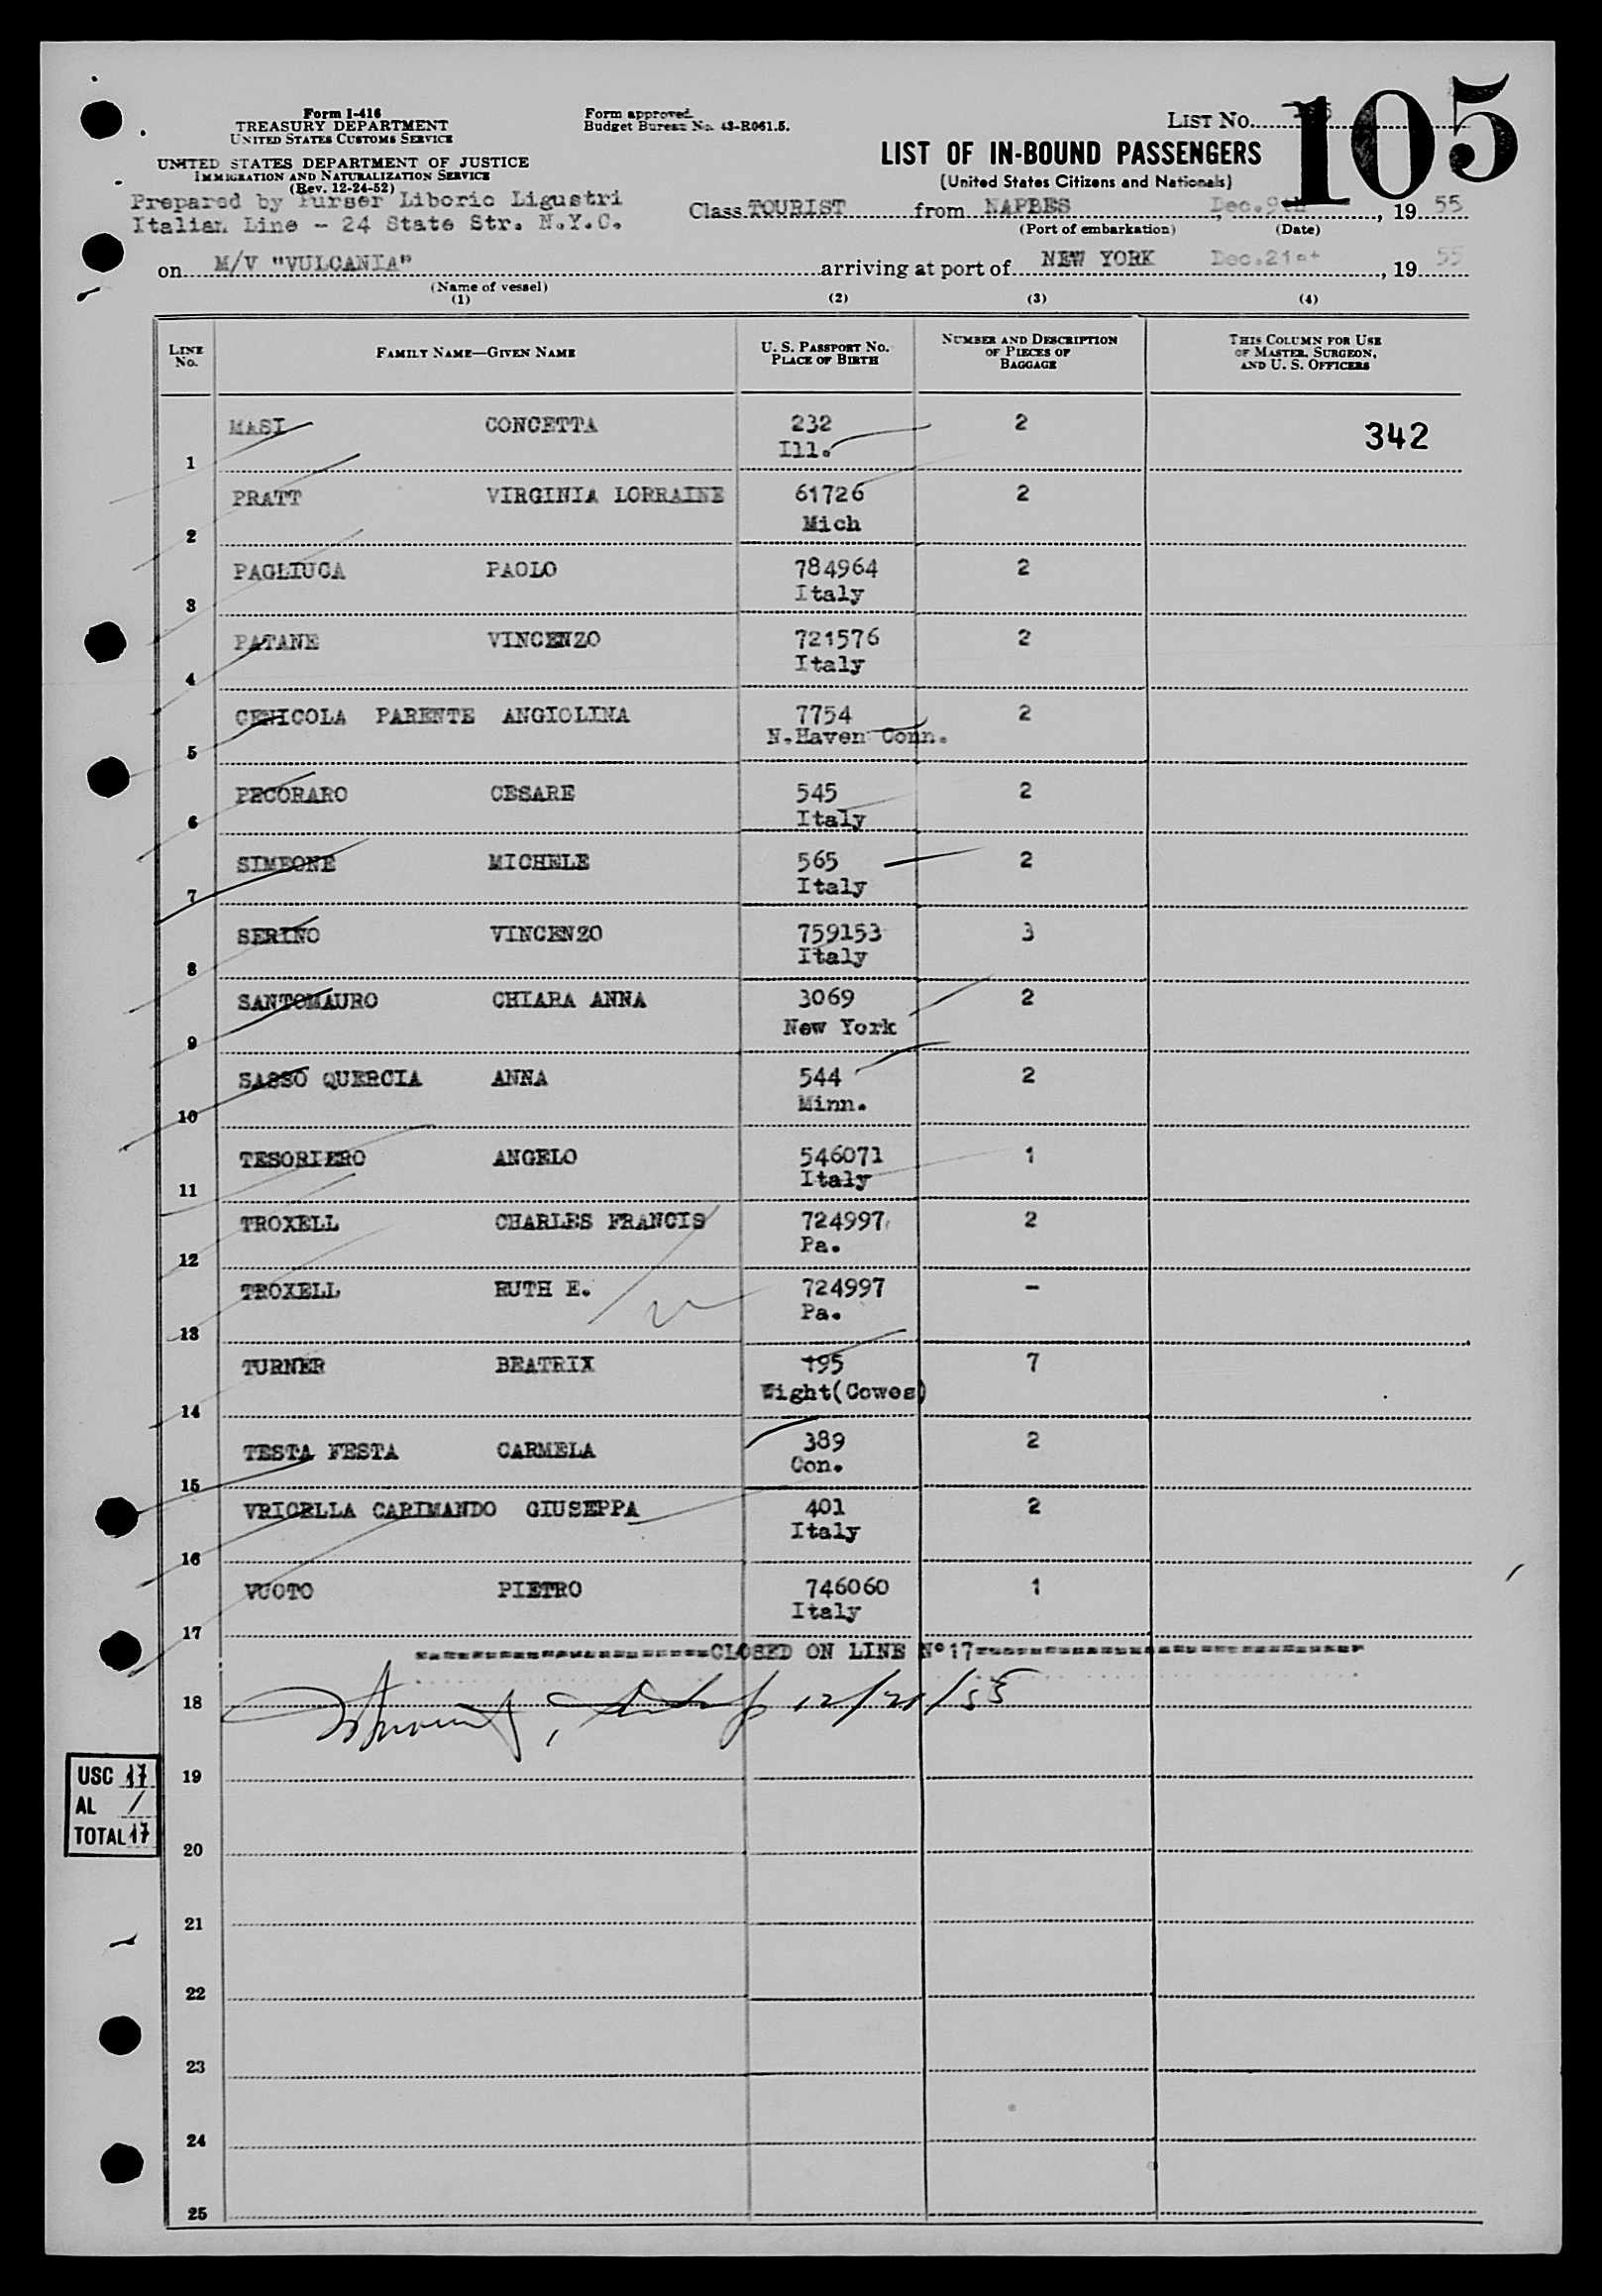 Form I-416
TREASURY DEPARTMENT
UNITED STATES CUSTOMS SERVICE
UNITED STATES DEPARTMENT OF JUSTICE
IMMIGRATION AND NATURALIZATION SERVICE
(Rev. 12-24-52)
Form approved.
Budget Bureau No. 43-R061.5.
LIST No.
105
LIST OF IN-BOUND PASSENGERS
(United States Citizens and Nationals)
Prepared by Purser Liborio Ligustri
Italian Line - 24 State Str. N.Y.C.
Class TOURIST from NAPLES, Dec.9th, 19 55
(Port of embarkation) (Date)
on M/V "VULCANIA" arriving at port of NEW YORK Dec.21st, 19 55
(Name of vessel)
(1) (2) (3) (4)
LINE No. FAMILY NAME—GIVEN NAME U. S. PASSPORT NO. PLACE OF BIRTH NUMBER AND DESCRIPTION OF PIECES OF BAGGAGE THIS COLUMN FOR USE OF MASTER, SURGEON, AND U. S. OFFICERS
1 MASI CONCETTA 232 2 342
Ill.
2 PRATT VIRGINIA LORRAINE 61726 2
Mich
3 PAGLIUCA PAOLO 784964 2
Italy
4 PATANE VINCENZO 721576 2
Italy
5 CENICOLA PARENTE ANGIOLINA 7754 2
N.Haven Conn.
6 PECORARO CESARE 545 2
Italy
7 SIMEONE MICHELE 565 2
Italy
8 SERINO VINCENZO 759153 3
Italy
9 SANTOMAURO CHIARA ANNA 3069 2
New York
10 SASSO QUERCIA ANNA 544 2
Minn.
11 TESORIERO ANGELO 546071 1
Italy
12 TROXELL CHARLES FRANCIS 724997 2
Pa.
13 TROXELL RUTH E. 724997 -
Pa.
14 TURNER BEATRIX 195 7
Wight(Cowes)
15 TESTA FESTA CARMELA 389 2
Con.
16 VRICELLA CARIMANDO GIUSEPPA 401 2
Italy
17 VUOTO PIETRO 746060 1
Italy
CLOSED ON LINE N°17
18 12/21/55
USC 17
AL /
TOTAL 17
19
20
21
22
23
24
25